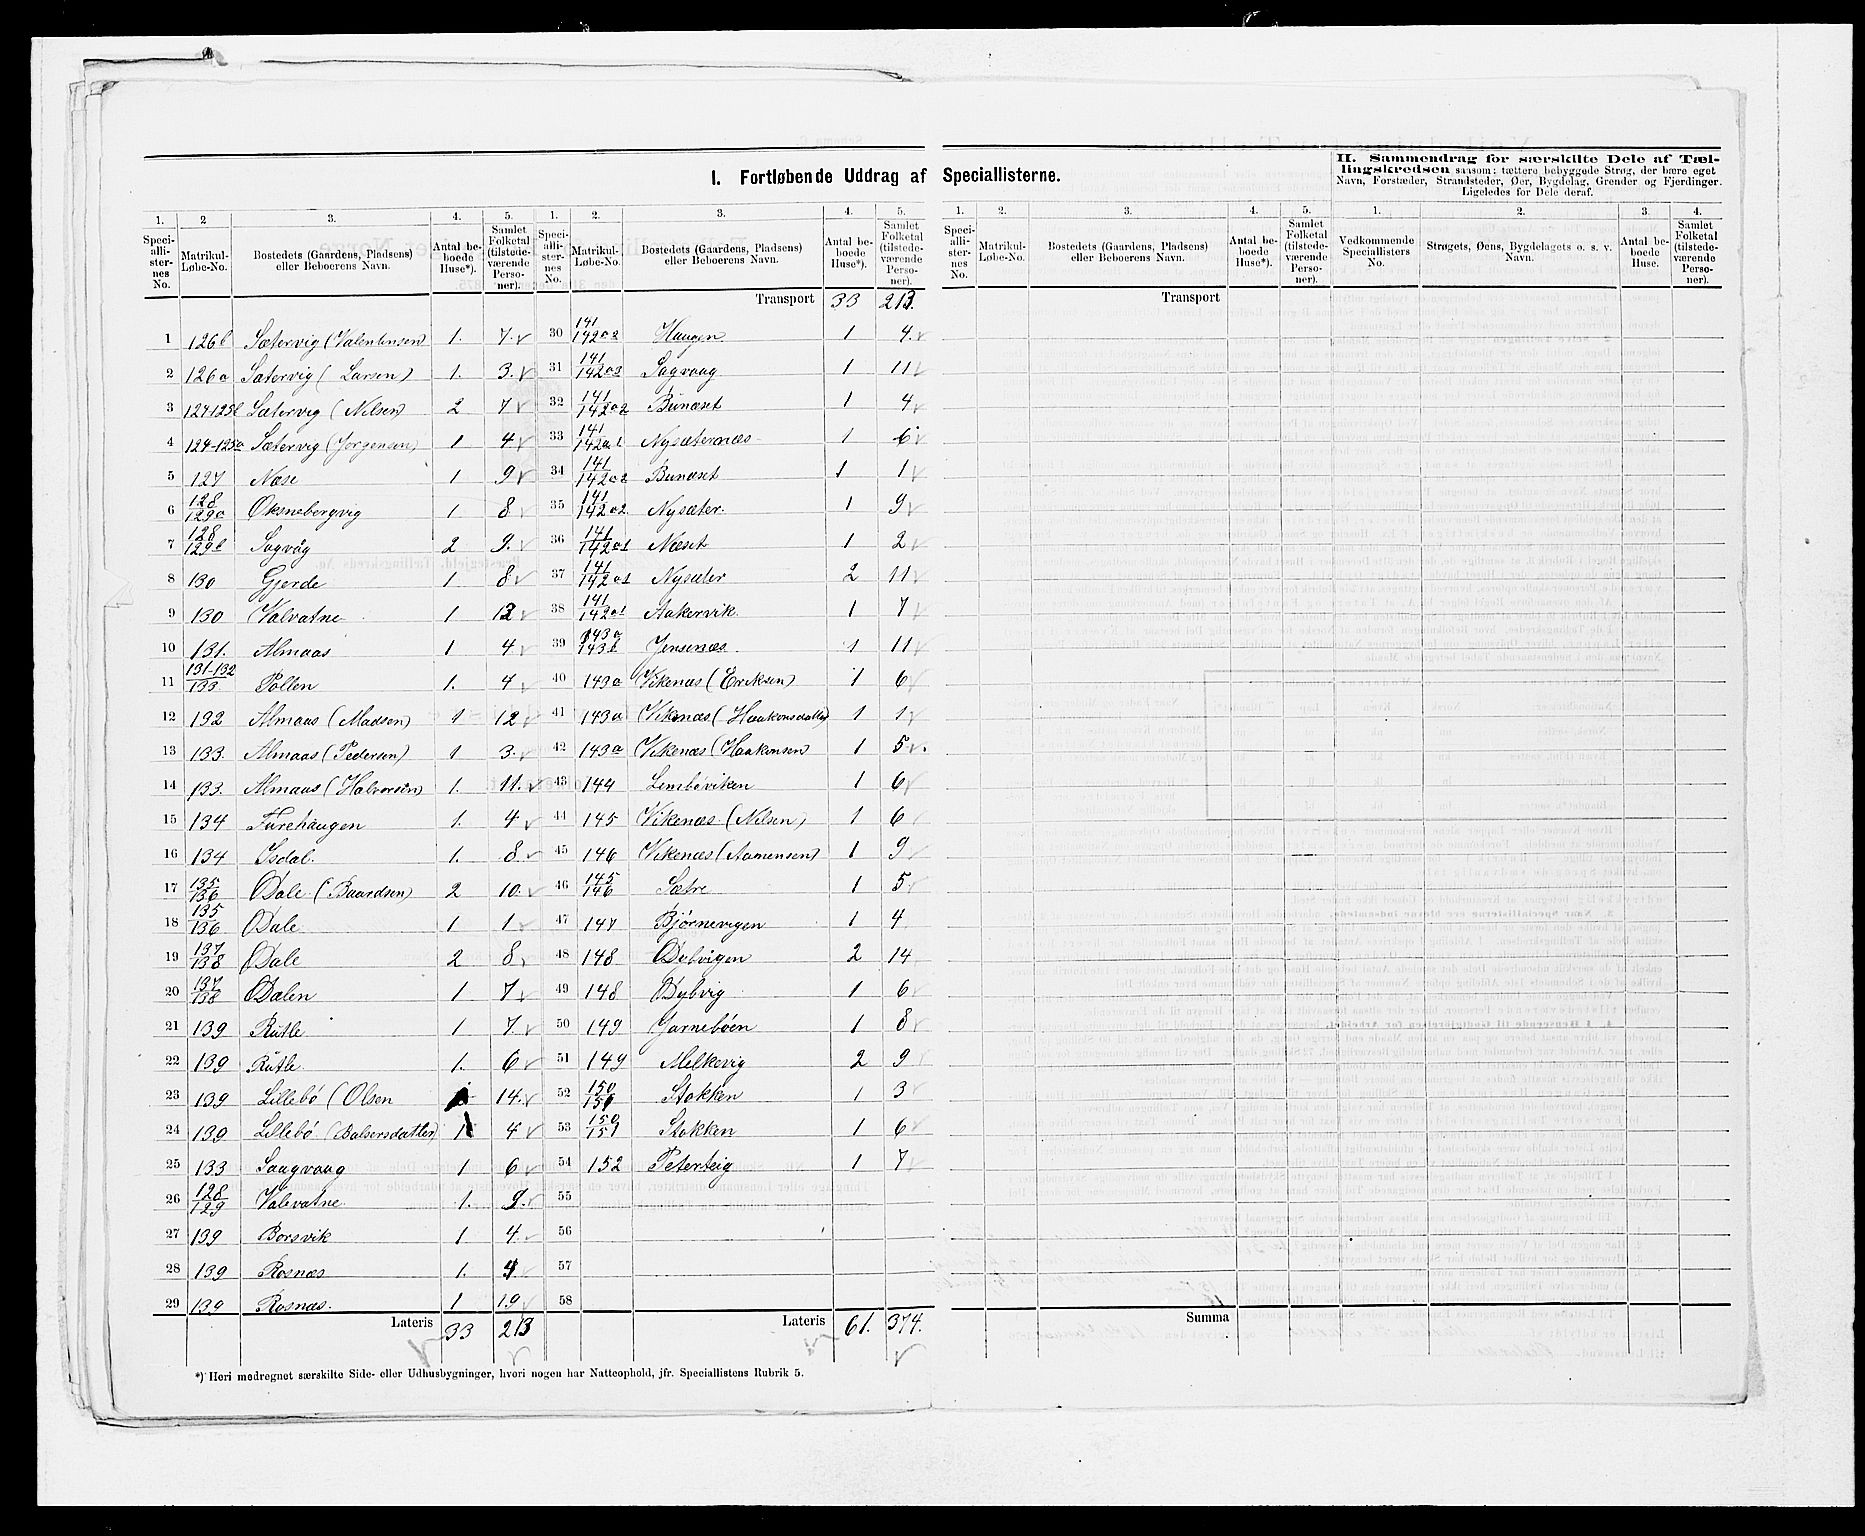 I. Fortløbende Uddrag af Speciallisterne.
II. Sammendrag for særskilte Dele af Tæl-
lingskredsen saasom: tættere bebyggede Strøg, der bære eget
Navn, Forstæder, Strandsteder, Øer, Bygdelag, Grender og Fjerdinger.
Ligeledes for Dele deraf.
1. 2 3. 4. 5. 1. 2. 3. 4. 5. 1. 2. 3. 4. 5. 1. 2. 3. 4.
Speci-allister-nes No. Matrikul-Løbe-No. Bostedets (Gaardens, Pladsens) eller Beboerens Navn. Antal be-boede Huse*). Samlet Folketal (tilstede-værende Perso-ner). Speci-allister-nes No. Matrikul-Løbe-No. Bostedets (Gaardens, Pladsens) eller Beboerens Navn. Antal be-boede Huse*). Samlet Folketal (tilstede-værende Perso-ner). Speci-allister-nes No. Matrikul-Løbe-No. Bostedets (Gaardens, Pladsens) eller Beboerens Navn. Antal be-boede Huse*). Samlet Folketal (tilstede-værende Perso-ner). Vedkommende Speciallisters No. Strøgets, Øens, Bygdelagets o. s. v. Navn. Antal be-boede Huse. Samlet Folketal (tilstede-værende Perso-ner).
Transport 33 213. Transport
1 126b Sætervig (Valentinsen) 1. 7. 30 141/142a2 Haugen 1 4.
2 126a Sætervig (Larsen) 1. 3. 31 141/142a3 Sagvaag 1 11
3 124125b Sætervig (Nilsen) 2 7 32 141/142a2 Bunæset 1 4
4 124-125a Sætervig (Jørgensen) 1 4 33 141/142a1 Nysæternæs 1 6
5 127 Næse 1 9 34 141/142a2 Bunæset 1 1
6 128/129a Oksnebergvig 1 8 35 141/142a2 Nysæter 1 9
7 128/129b Sagvåg 2 9. 36 141/142a1 Næset 1 2
8 130 Gjerde 1 8 37 141/142a1 Nysæter 2 11
9 130 Valvatne 1 12 38 141/142a1 Aakervik 1 7
10 131. Almaas 1 4 39 143a/143b Jensenæs 1 11
11 131-132/133 Pollen 1. 4 40 143a Vikenæs (Eriksen) 1 6
12 132 Almaas (Madsen) 1 12 41 143a Vikenæs (Haakonsdatter) 1 1
13 133. Almaas (Pedersen) 1 3. 42 143a Vikenæs (Haakonsen) 1 5
14 133. Almaas (Halvorsen) 1. 11. 43 144 Lembøviken 1 6
15 134 Furehaugen 1. 4 44 145 Vikenæs (Nilsen) 1 6
16 134 Isdal. 1. 8 45 146 Vikenæs (Aamensen) 1 9
17 135/136 Dale (Baardsen) 2 10. 46 145/146 Sætre 1 5
18 135/136 Dale 1 1 47 147 Bjørnevigen 1 4
19 137/138 Dale 2 8 48 148 Dybvigen 2 14
20 137/138 Dalen 1 7 49 148 Dybvig 1 6
21 139 Rutle 1 7. 50 149 Jarnebøen 1 8
22 139 Rutle 1. 6 51 149 Melkevig 2 9
23 139 Lillebø (Olsen 1 14. 52 150/151 Stokken 1 3
24 139 Lillebø (Balsersdatter) 1 4 53 150/151 Stokken 1 6
25 133 Saagvaag 1 6 54 152 Peterteig 1 7
26 128/129 Valevatne 1. 9. 55
27 139 Borsvik 1 4. 56
28 139 Rosnæs 1. 4 57
29 139 Rosnæs. 1 19 58
Lateris 33 213 Lateris 61. 374. Summa
*) Heri medregnet særskilte Side- eller Udhusbygninger, hvori nogen har Natteophold, jfr. Speciallistens Rubrik 5.